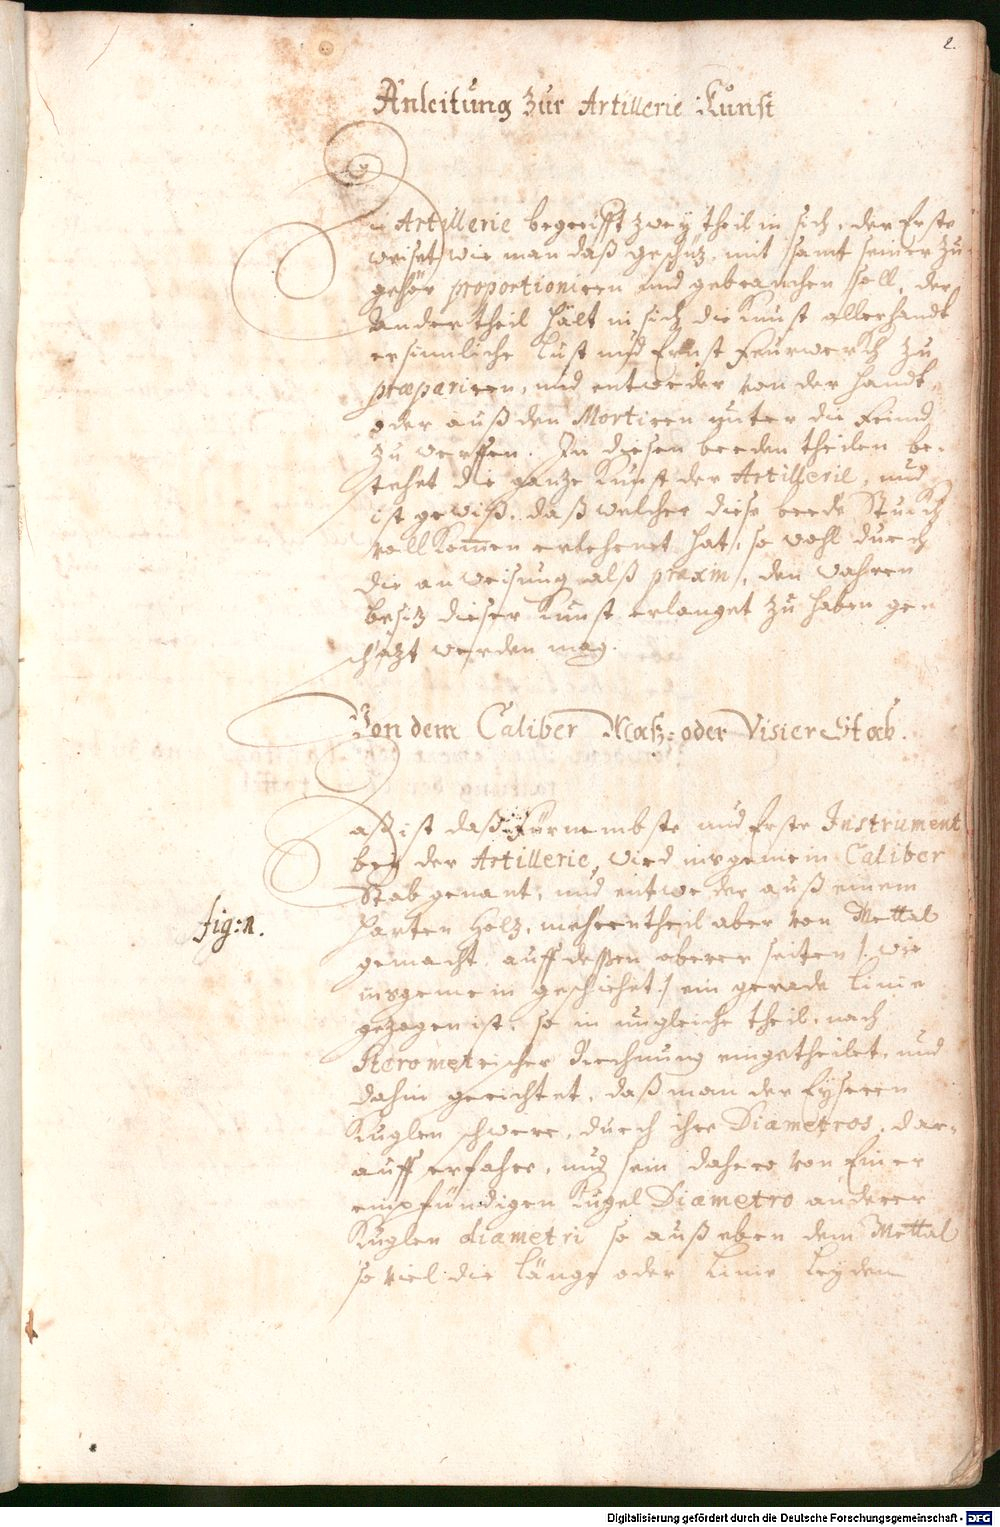 2.
Anleitung zur Artillerie Kunst
Die Artillerie begreifft zwey theil in sich, der Erste
weiset wie man daß geschüz, mit samt seiner zu
gehör proportioniren und gebrauchen soll, der
Ander theil hält in sich die Kunst allerhandt
ersinnliche Lust und Ernst Feurwerckh zu
præpariren, und entweder von der Handt
oder auß den Mortiren unter die Feind
zu werffen. In diesen beeden theilen be-
stehet die ganze Kunst der Artillerie, und
ist gewiß, daß welcher diese beede Stuckh
vollkommen erlehrnet hat, so wohl durch
die anweisung alß praxin, den wahren
besiz dieser Kunst erlanget zu haben ge-
schäzt werden mag.
Von dem Caliber Maß- oder Visier Stab.
Daß ist daß Fürnembste und Erste Instrument
bey der Artillerie, wird insgemein Caliber
Stab genant, und entweder auß einem
fig: 1.
harten Holz, mehrentheil aber von Mettal
gemacht, auff deßen oberer seiten /: wie
insgemein geschiehet :/ ein gerade Linie
gezogen ist, so in ungleiche theil, nach
Sterometrischer Rechnung eingetheilet, und
dahin gerichtet, daß man der Eyseren
Kuglen schwere, durch ihre Diametros, dar-
auff erfahre, und sein dahero von Einer
einpfündigen Kugel Diametro anderer
Kuglen diametri so auß eben dem Mettal
so viel die Länge oder Linie Leyden
Digitalisierung gefördert durch die Deutsche Forschungsgemeinschaft - DFG